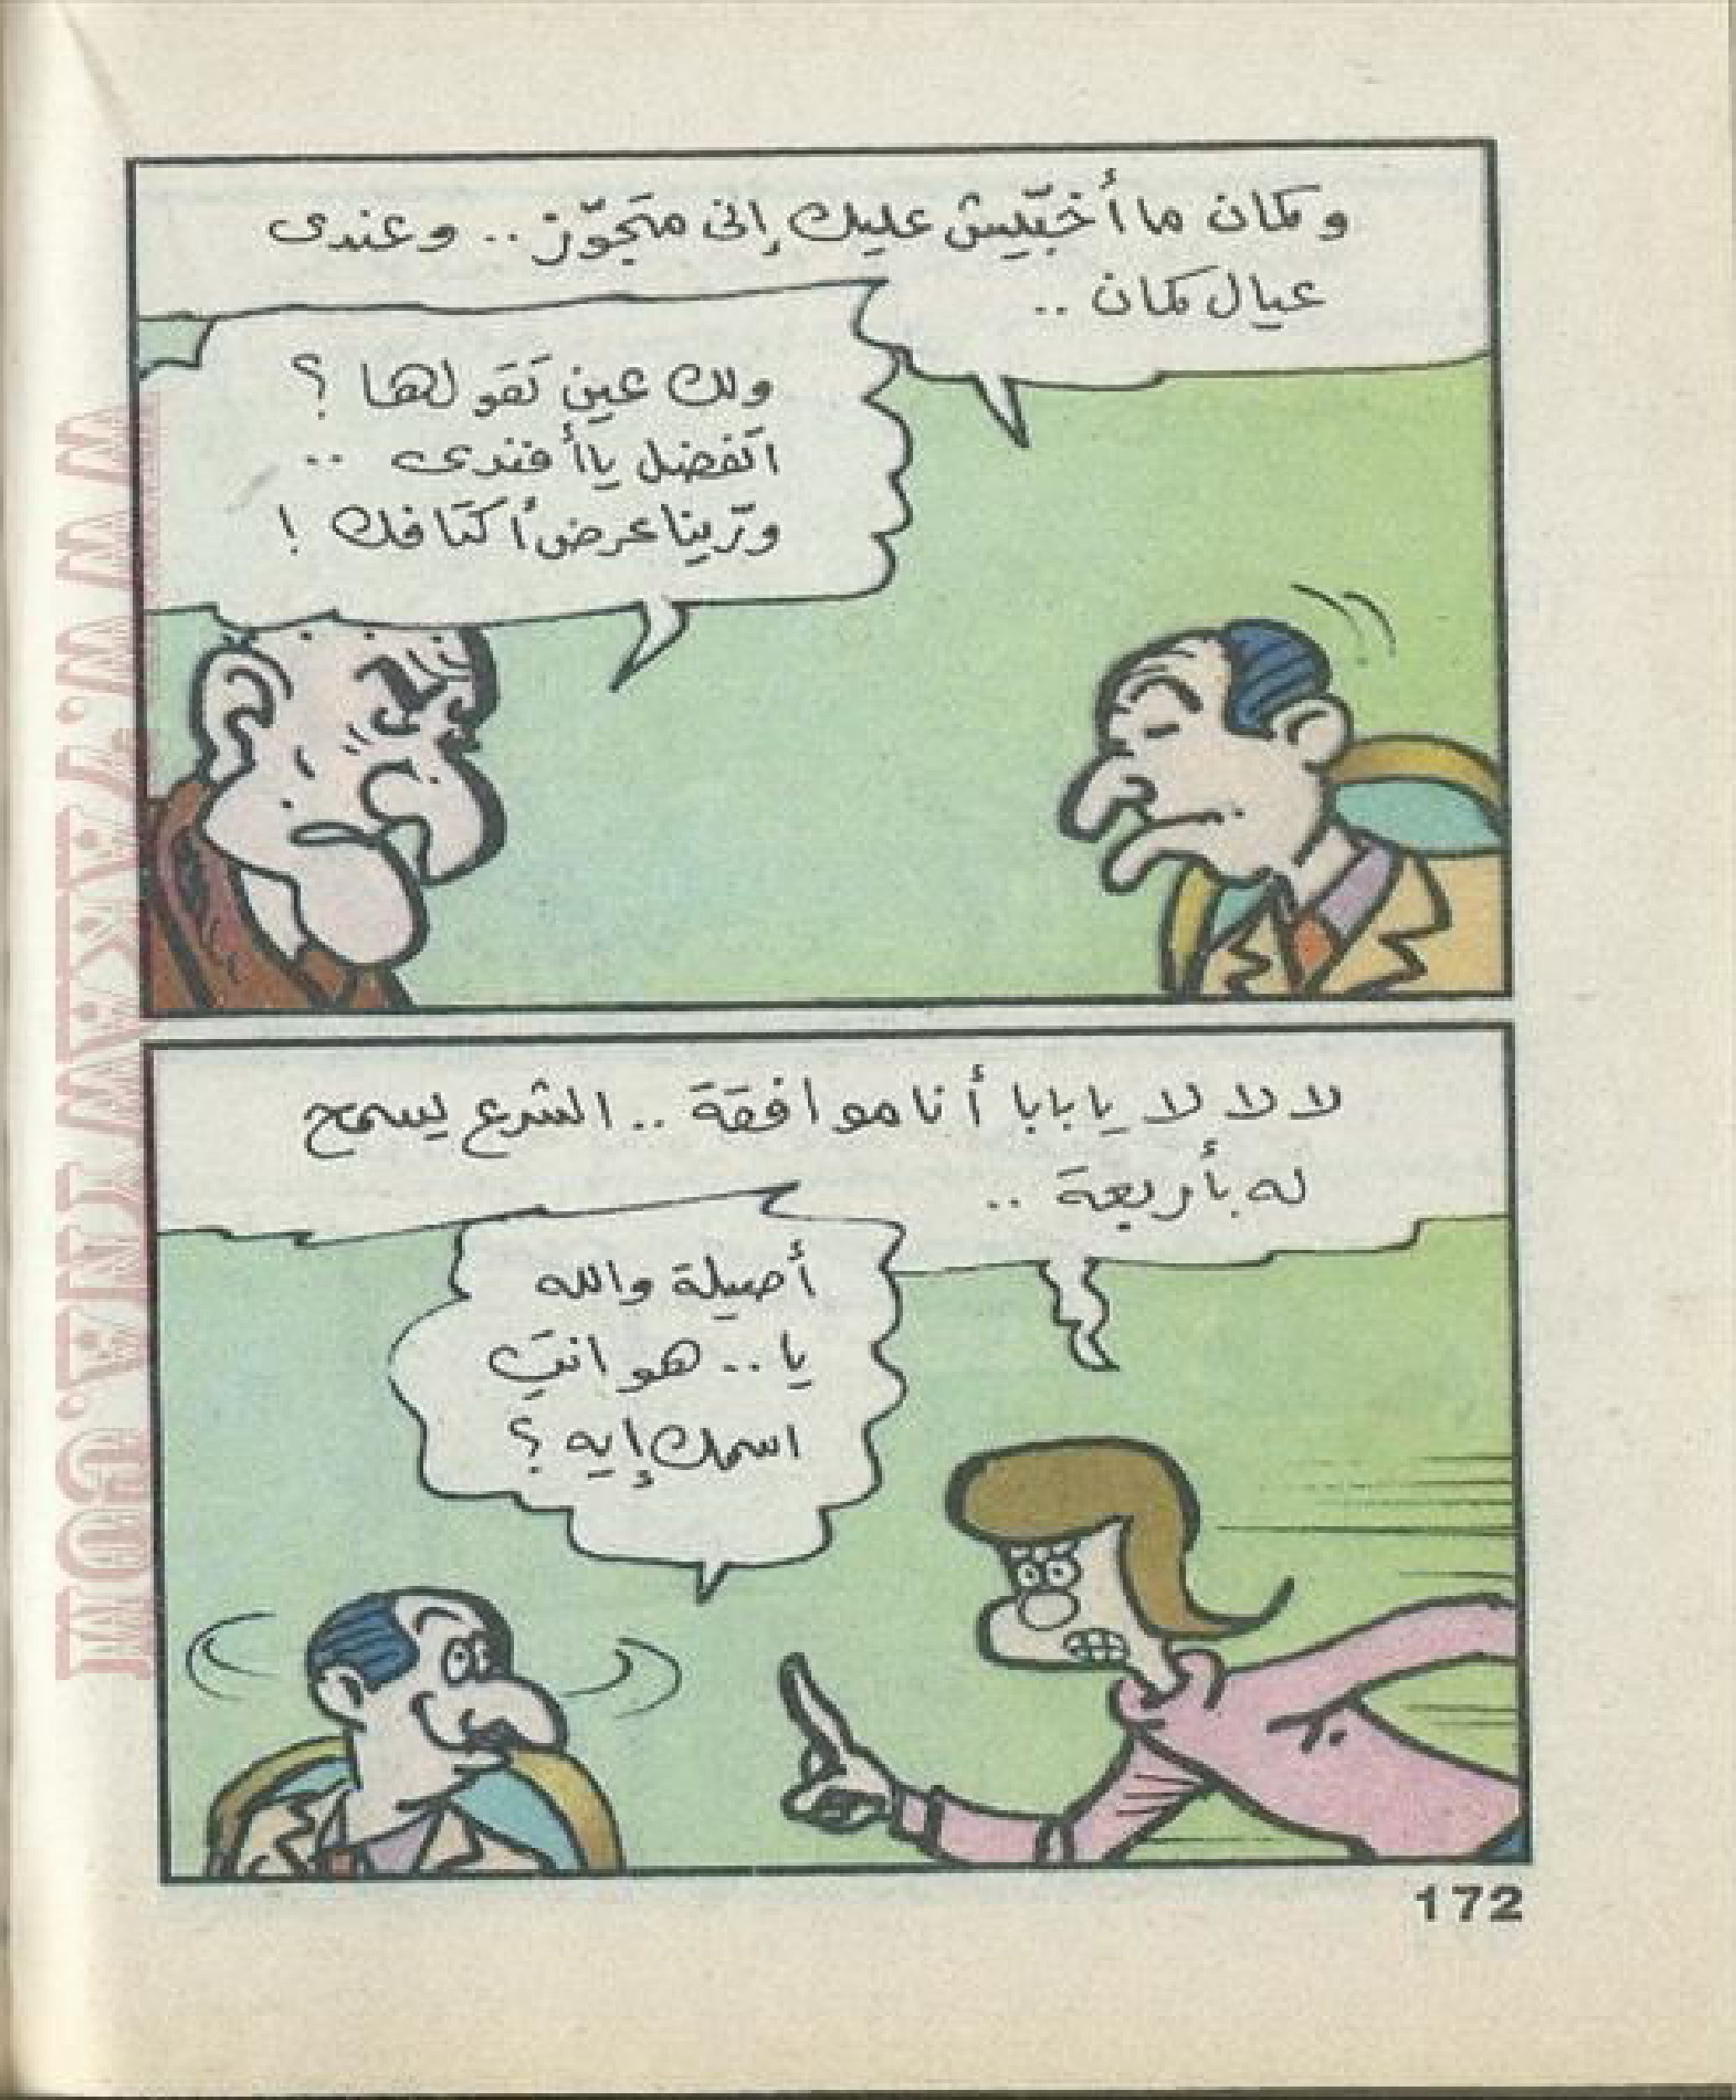 وكمان ما أخبّيش عليك إنى متجوّز .. وعندى
عيال كمان ..
ولك عين تقولها ؟
اتفضل يا أفندى ..
ورّينا عرض أكتافك !
لا لا لا يا بابا أنا موافقة .. الشرع يسمح
له بأربعة ..
أصيلة والله
يا .. هو انتِ
اسمك إيه ؟
172